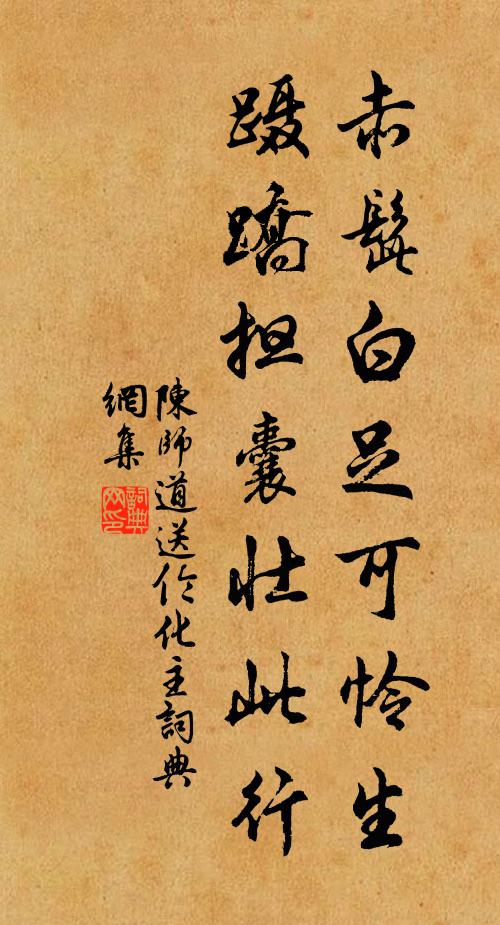 赤髭白足可怜生
蹑蹻担囊壮此行
陳師道送伶化主詞典
網集
詞典網印